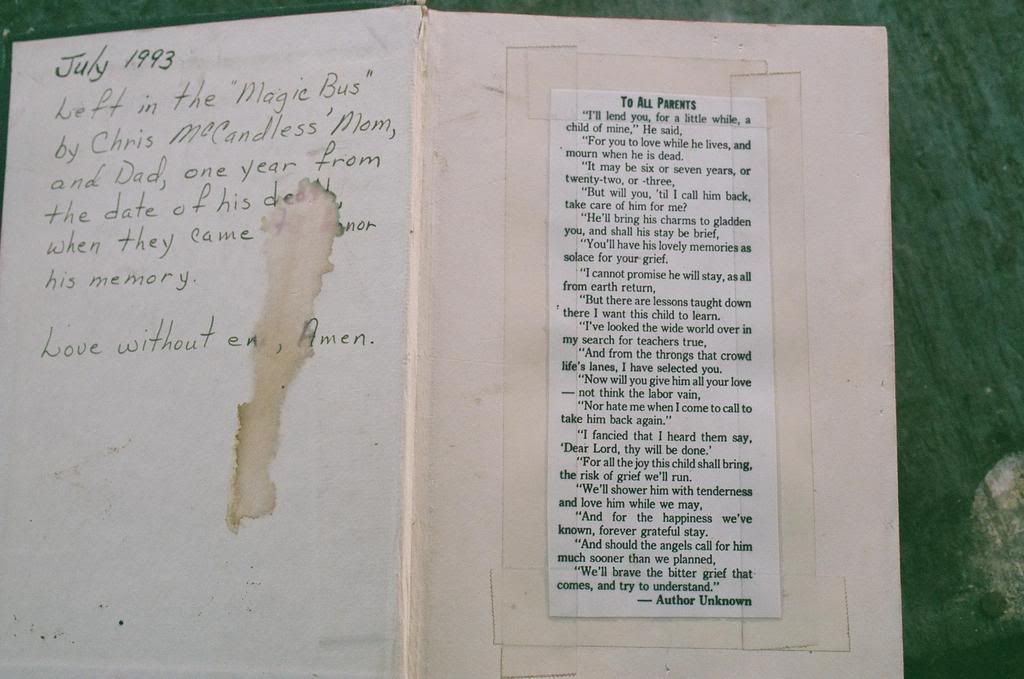 July 1993
Left in the "Magic Bus"
by Chris McCandless' Mom,
and Dad, one year from
the date of his
when they came
his memory.
Love without , Amen.
To All Parents
"I'll lend you, for a little while, a
child of mine," He said,
"For you to love while he lives, and
mourn when he is dead.
"It may be six or seven years, or
twenty-two, or -three,
"But will you, 'til I call him back,
take care of him for me?
"He'll bring his charms to gladden
you, and shall his stay be brief,
"You'll have his lovely memories as
solace for your grief.
"I cannot promise he will stay, as all
from earth return,
"But there are lessons taught down
there I want this child to learn.
"I've looked the wide world over in
my search for teachers true,
"And from the throngs that crowd
life's lanes, I have selected you.
"Now will you give him all your love
— not think the labor vain,
"Nor hate me when I come to call to
take him back again."
"I fancied that I heard them say,
'Dear Lord, thy will be done.'
"For all the joy this child shall bring,
the risk of grief we'll run.
"We'll shower him with tenderness
and love him while we may,
"And for the happiness we've
known, forever grateful stay.
"And should the angels call for him
much sooner than we planned,
"We'll brave the bitter grief that
comes, and try to understand."
— Author Unknown